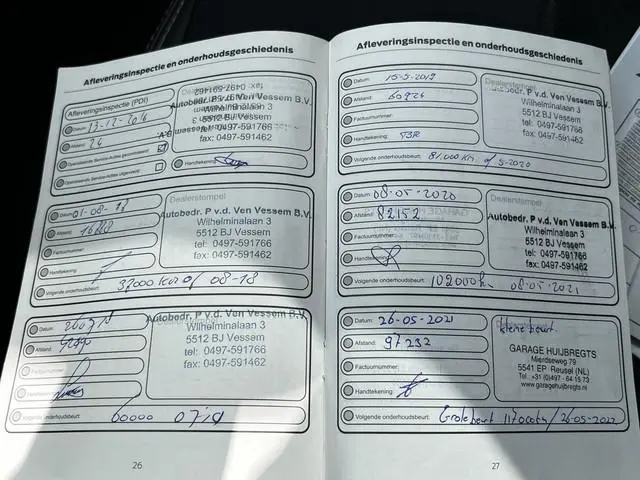 Afleveringsinspectie en onderhoudsgeschiedenis
Afleveringsinspectie (PDI)
Datum: 13-12-2016
Afstand: 24
Openstaande Service-Acties uitgevoerd
Openstaande Service-Acties uitgevoerd
Handtekening:
fax: 0497-591462
Autobedr. P v.d. Ven Vessem B.V.
Wilhelminalaan 3
5512 BJ Vessem
tel: 0497-591766
fax: 0497-591462
Datum: 01-08-18
Afstand:
Factuurnummer:
Handtekening:
Volgende onderhoudsbeurt: 08-18
Dealerstempel
Autobedr. P v.d. Ven Vessem B.V.
Wilhelminalaan 3
5512 BJ Vessem
tel: 0497-591766
fax: 0497-591462
Datum:
Afstand:
Factuurnummer:
Handtekening:
Volgende onderhoudsbeurt: 60000
Dealerstempel
Autobedr. P v.d. Ven Vessem B.V.
Wilhelminalaan 3
5512 BJ Vessem
tel: 0497-591766
fax: 0497-591462
26
Afleveringsinspectie en onderhoudsgeschiedenis
Datum: 15-5-2019
Afstand: 60926
Factuurnummer:
Handtekening:
Volgende onderhoudsbeurt: 81.000 km of 5-2020
Dealerstempel
Autobedr. P v.d. Ven Vessem B.V.
Wilhelminalaan 3
5512 BJ Vessem
tel: 0497-591766
fax: 0497-591462
Datum: 08-05-2020
Afstand: 82152
Factuurnummer:
Handtekening:
Volgende onderhoudsbeurt: 102000 km 08-05-2021
Dealerstempel
Autobedr. P v.d. Ven Vessem B.V.
Wilhelminalaan 3
5512 BJ Vessem
tel: 0497-591766
fax: 0497-591462
Datum: 26-05-2021
Afstand: 97232
Factuurnummer:
Handtekening:
Volgende onderhoudsbeurt: Grote beurt 117000km / 26-05-2022
kleine beurt
GARAGE HUIJBREGTS
Mierdseweg 79
5541 EP Reusel (NL)
Tel. +31 (0)497 - 64 15 73
www.garagehuijbregts.nl
27